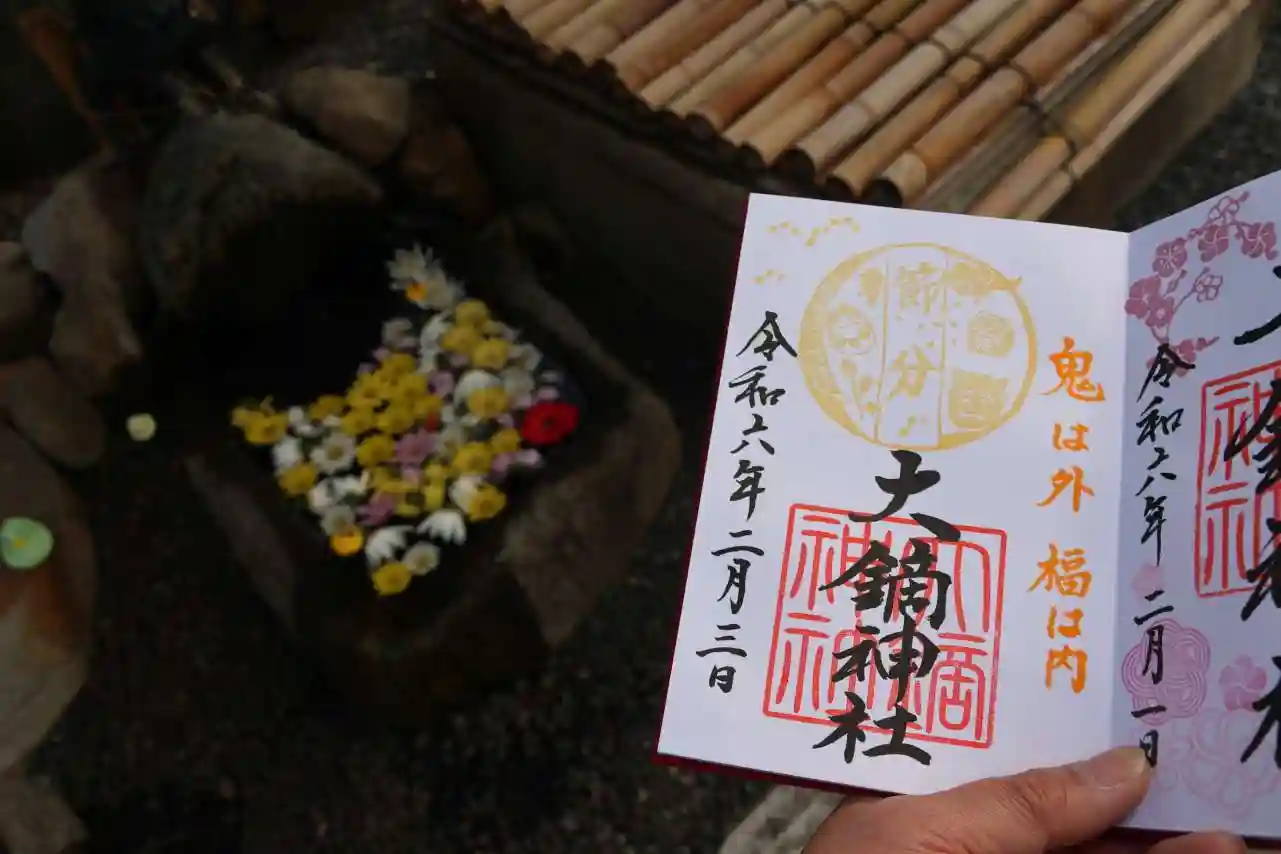 令和六年 二月一日
鬼は外 福は内
節分
大鏑神社
令和六年 二月三日